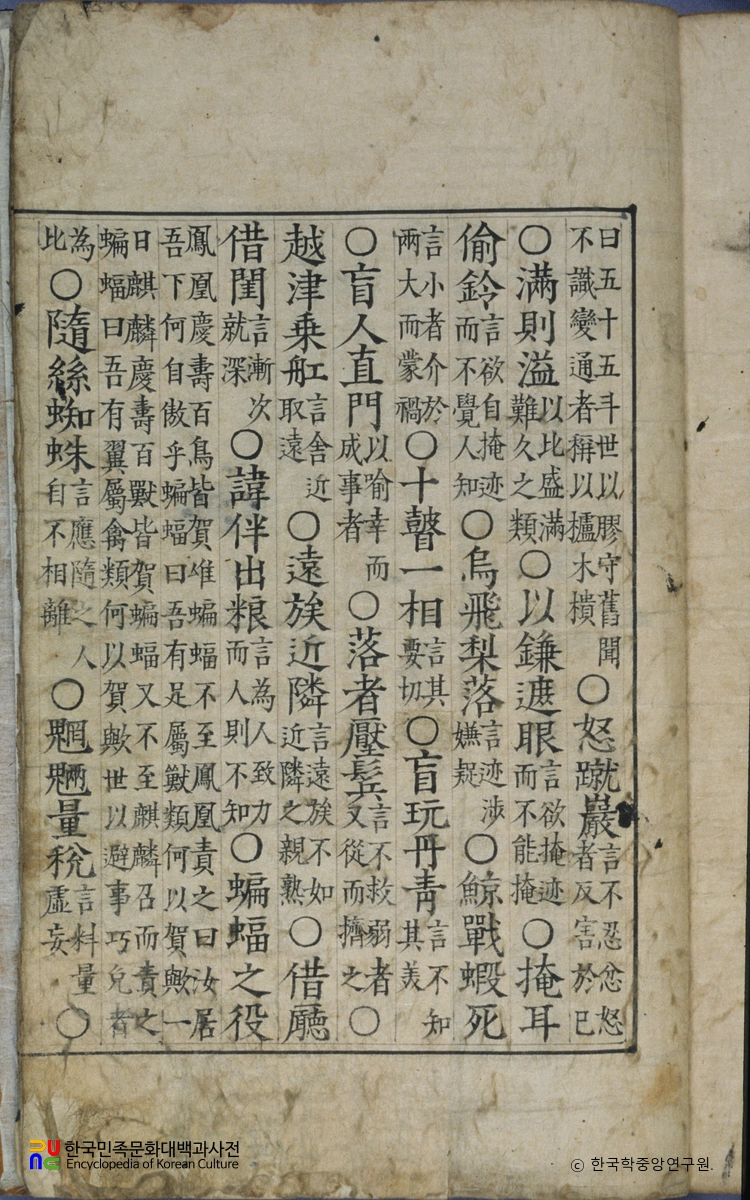 曰五十五斗世以膠守舊聞不識變通者稱以攎木樻○怒蹴巖言不忍忿怒者反害於已
○滿則溢以比盛滿難久之類○以鎌遮眼言欲掩迹而不能掩○掩耳
偷鈴言欲自掩迹而不覺人知○烏飛梨落言迹涉嫌疑○鯨戰蝦死
言小者介於兩大而蒙禍○十瞽一相言其要切○盲玩丹青言不知其美
○盲人直門以喻幸而成事者○落者壓鬂言不救弱者又從而擠之○
越津乗舡言舍近取遠○遠族近隣言遠族不如近隣之親熟○借廳
借閨言漸次就深○諱伴出粮言為人致力而人則不知○蝙蝠之役
鳳凰慶壽百鳥皆賀惟蝙蝠不至鳳凰責之曰汝居吾下何自傲乎蝙蝠曰吾有足屬獸類何以賀歟一
日麒麟慶壽百獸皆賀蝙蝠又不至麒麟召而責之蝙蝠曰吾有翼屬禽類何以賀歟世以避事巧免者
為比○隨絲蜘蛛言應隨之人自不相離○魍魎量稅言料量虛妄○
한국민족문화대백과사전
Encyclopedia of Korean Culture
ⓒ 한국학중앙연구원.